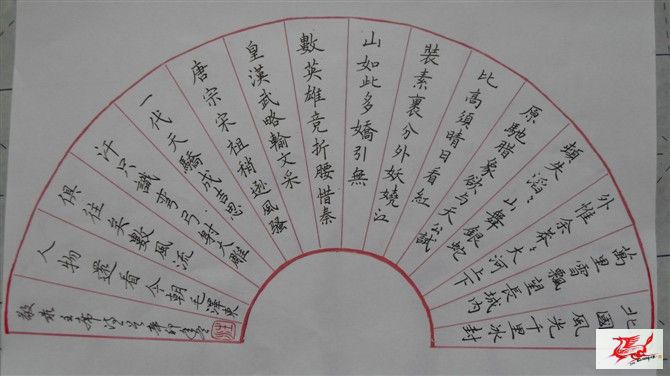 北國風光千里冰封
萬里雪飄望長城內
外惟余莽〻大河上下
頓失滔〻山舞銀蛇
原馳腊象欲与天公試
比高須晴日看紅
裝素裹分外妖嬈江
山如此多嬌引無
數英雄竞折腰惜秦
皇漢武略輸文采
唐宗宋祖稍遜風騷
一代天驕成吉思
汗只識彎弓射大雕
俱往矣數風流
人物還看今朝毛澤東
主席